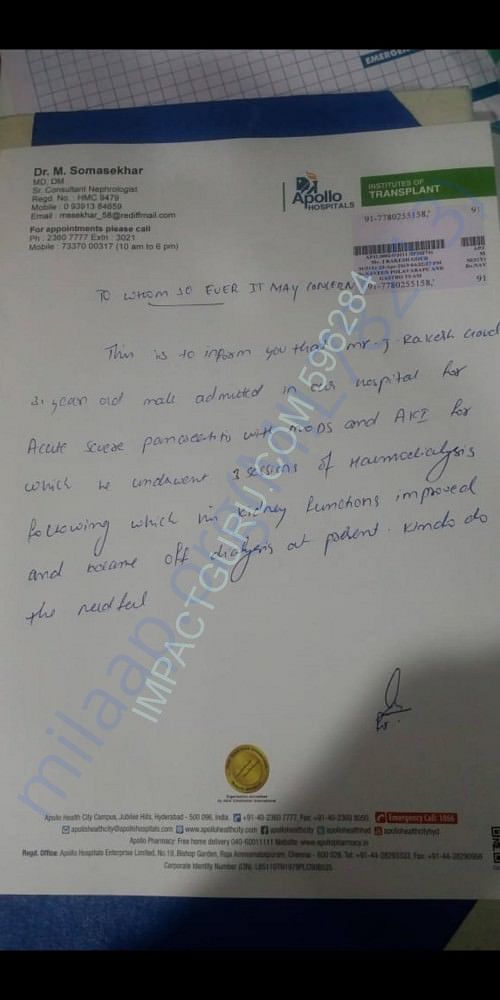 EMERGEN
Dr. M. Somasekhar
MD. DM
Sr. Consultant Nephrologist
Regd. No. : HMC 9479
Mobile : 0 93913 84659
Email : msekhar_58@rediffmail.com
For appointments please call
Ph : 2360 7777 Extn : 3021
Mobile : 73370 00317 (10 am to 6 pm)
Apollo
HOSPITALS
INSTITUTES OF
TRANSPLANT
91-7780255158,' 91
Mr. J RAKESH GOUD
GASTRO TEAM
91-7780255158,' 91
TO WHOM SO EVER IT MAY CONCERN
This is to inform you that mr. J. Rakesh Goud
31 year old male admitted in our hospital for
Acute severe pancreatitis with MODS and AKI for
which he underwent 3 sessions of Haemodialysis
following which his kidney functions improved
and became off dialysis at patient. Kindo do
the needful
milaap.org
IMPACTGURU.COM 596284
Apollo Health City Campus, Jubilee Hills, Hyderabad - 500 096, India. +91-40-2360 7777, Fax: +91-40-2360 8050 Emergency Call: 1066
apollohealthcity@apollohospitals.com www.apollohealthcity.com apollohealthcity apollohealthhyd apollohealthcityhyd
Apollo Pharmacy: Free home delivery 040-60011111 Website: www.apollopharmacy.in
Regd. Office: Apollo Hospitals Enterprise Limited, No.19, Bishop Garden, Raja Annamalaipuram, Chennai - 600 028.
Corporate Identity Number (CIN)